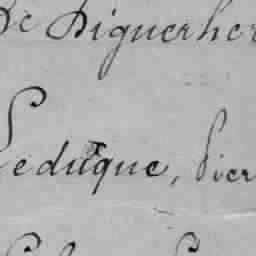 De Diguerher
Leduque, Pier